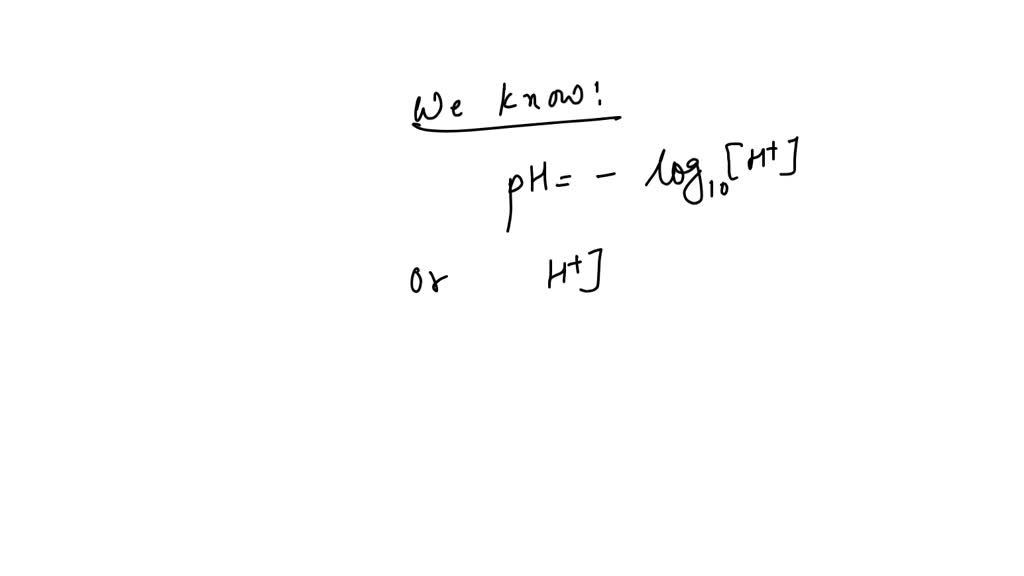 We know!
pH = - log₁₀ [H⁺]
or H⁺]